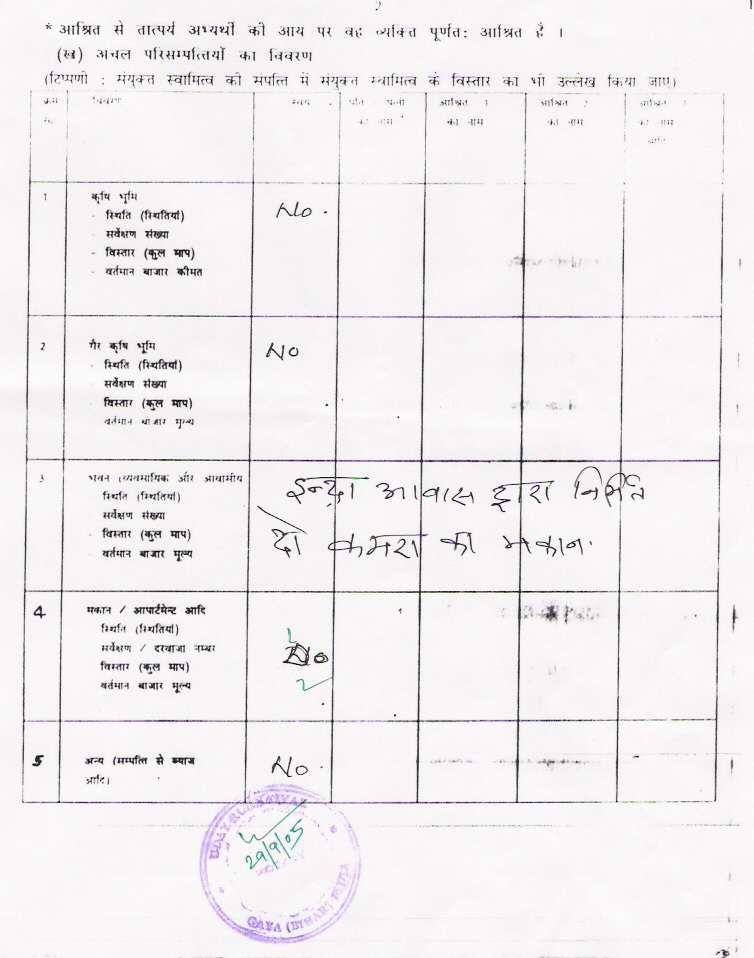 2
* आश्रित से तात्पर्य अभ्यर्थी की आय पर वह व्यक्ति पूर्णत: आश्रित है ।
(ख) अचल परिसम्पत्तियों का विवरण
(टिप्पणी : संयुक्त स्वामित्व की संपत्ति में संयुक्त स्वामित्व के विस्तार का भी उल्लेख किया जाए)
क्रम विवरण स्वयं पति पत्नी आश्रित 1 आश्रित 2 आश्रित 3
सं. का नाम का नाम का नाम का नाम
आदि
1 कृषि भूमि No.
- स्थिति (स्थितियां)
सर्वेक्षण संख्या
- विस्तार (कुल माप)
- वर्तमान बाजार कीमत
2 गैर कृषि भूमि NO
- स्थिति (स्थितियां)
सर्वेक्षण संख्या
विस्तार (कुल माप)
वर्तमान बाजार मूल्य
3 भवन (व्यवसायिक और आवासीय इन्द्रा आवास द्वारा निर्मित
स्थिति (स्थितियां)
सर्वेक्षण संख्या
विस्तार (कुल माप) दो कमरा का मकान.
वर्तमान बाजार मूल्य
4 मकान / आपार्टमेन्ट आदि
स्थिति (स्थितियां)
सर्वेक्षण / दरवाजा नम्बर No
विस्तार (कुल माप)
वर्तमान बाजार मूल्य
5 अन्य (सम्पत्ति से ब्याज No.
आदि)
29/9/05
GAYA (BIHAR) INDIA